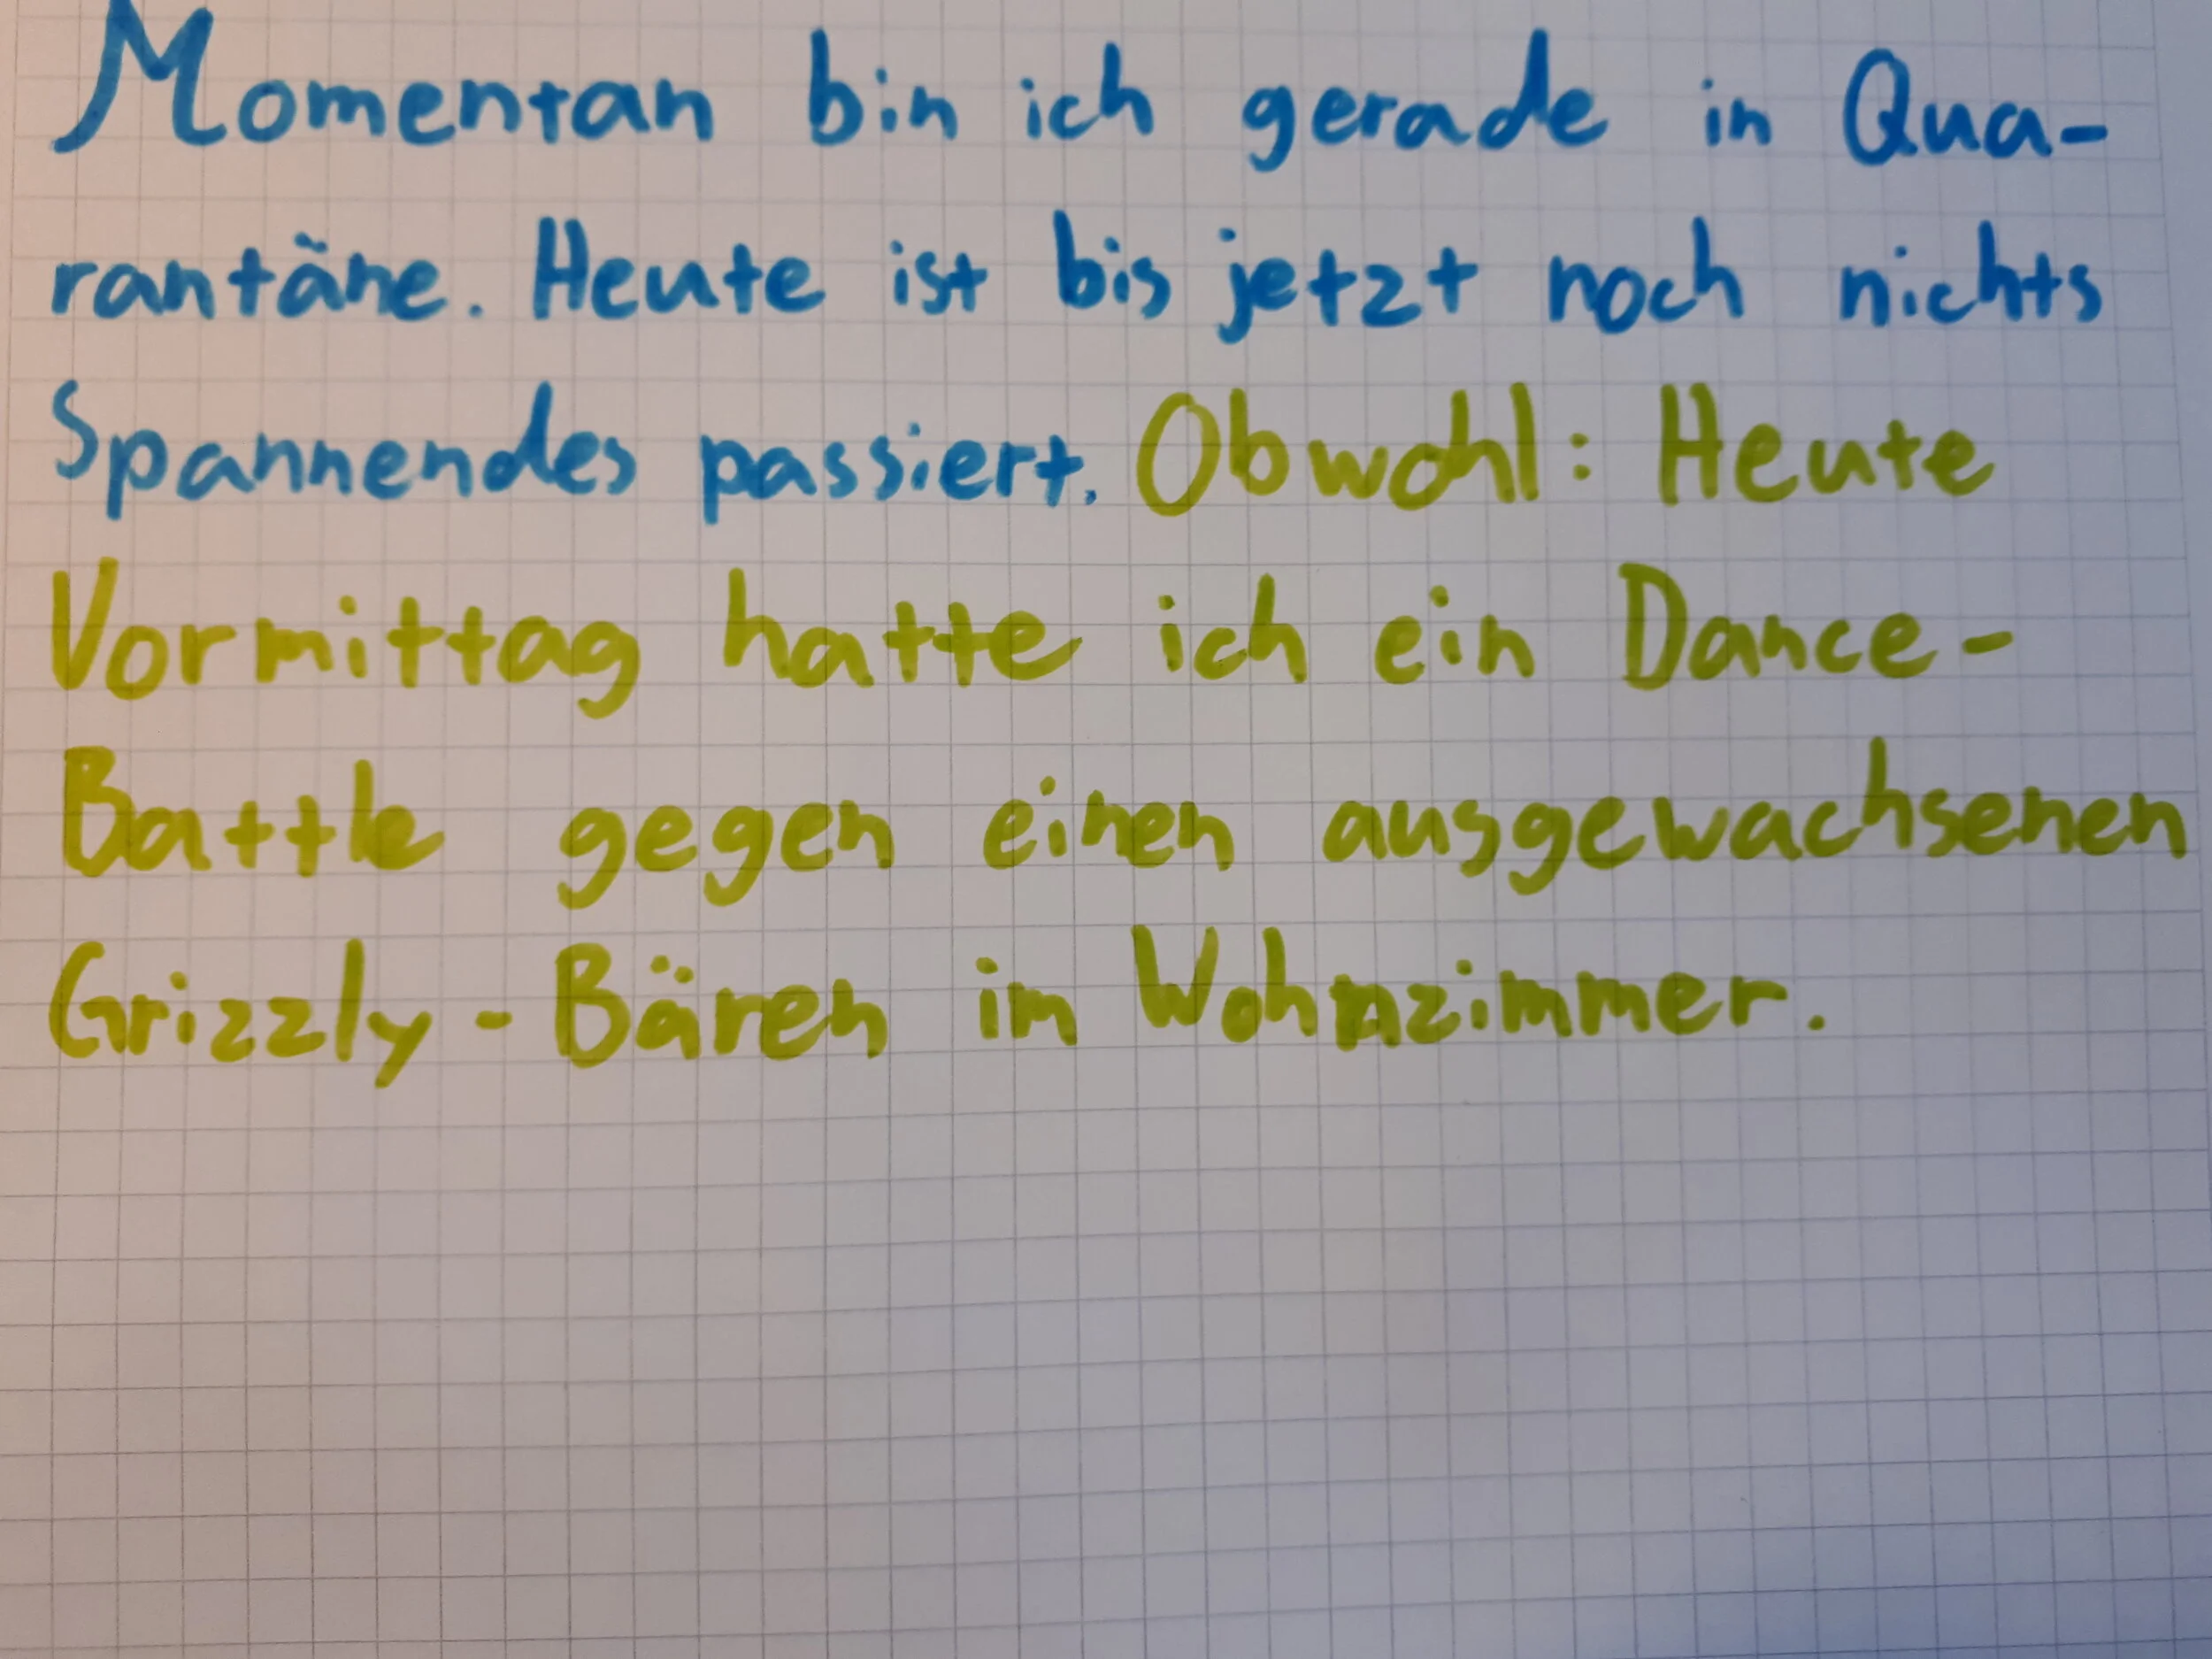 Momentan bin ich gerade in Qua-
rantäne. Heute ist bis jetzt noch nichts
Spannendes passiert. Obwohl: Heute
Vormittag hatte ich ein Dance-
Battle gegen einen ausgewachsenen
Grizzly-Bären im Wohnzimmer.